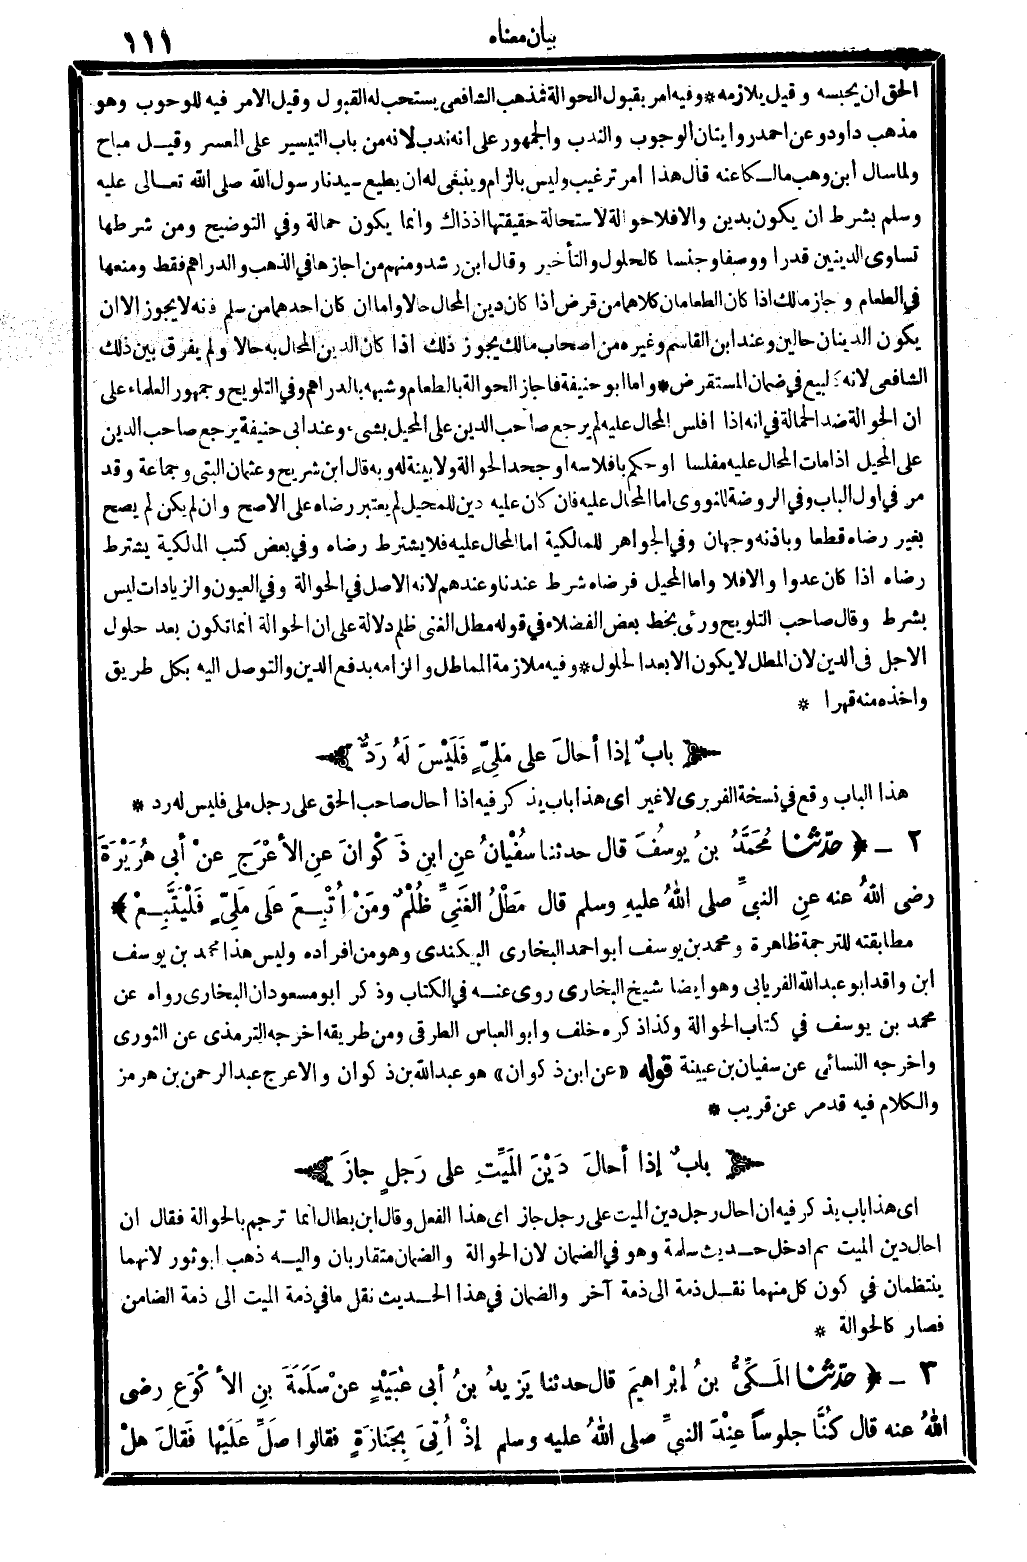 بيان معناه ١١١
الحق ان يحبسه وقيل يلازمه * وفيه امر بقبول الحوالة فمذهب الشافعى يستحب له القبول وقيل الامر فيه للوجوب وهو
مذهب داود وعن احمد روايتان الوجوب والندب والجمهور على انه ندب لانه من باب التيسير على المعسر وقيل مباح
ولما سال ابن وهب مالكا عنه قال هذا امر ترغيب وليس بالزام وينبغى له ان يطيع سيدنا رسول الله صلى الله تعالى عليه
وسلم بشرط ان يكون بدين والا فلا حوالة لاستحالة حقيقتها اذ ذاك وانما يكون حمالة وفي التوضيح ومن شرطها
تساوى الدينين قدرا ووصفا وجنسا كالحلول والتأخير وقال ابن رشد ومنهم من اجازها في الذهب والدراهم فقط ومنعها
في الطعام وجاز مالك اذا كان الطعامان كلاهما من قرض اذا كان دين المحال حالا واما ان كان احدهما من سلم فنه لا يجوز الا ان
يكون الدينان حالين وعند ابن القاسم وغيره من اصحاب مالك يجوز ذلك اذا كان الدين المحال به حالا ولم يفرق بين ذلك
الشافعى لانه كالبيع في ضمان المستقرض * واما ابو حنيفة فاجاز الحوالة بالطعام وشبهه بالدراهم وفي التلويح وجمهور العلماء على
ان الحوالة ضد الحمالة في انه اذا افلس المحال عليه لم يرجع صاحب الدين على المحيل بشىء وعند ابى حنيفة يرجع صاحب الدين
على المحيل اذا مات المحال عليه مفلسا او حكم بافلاسه او جحد الحوالة ولا بينة له وبه قال ابن شريح وعثمان البتى وجماعة وقد
مر في اول الباب وفي الروضة للنووى اما المحال عليه فان كان عليه دين للمحيل لم يعتبر رضاه على الاصح وان لم يكن لم يصح
بغير رضاه قطعا وباذنه وجهان وفي الجواهر للمالكية اما المحال عليه فلا يشترط رضاه وفي بعض كتب المالكية يشترط
رضاه اذا كان عدوا والا فلا واما المحيل فرضاه شرط عندنا وعندهم لانه الاصل في الحوالة وفي العيون والزيادات ليس
بشرط وقال صاحب التلويح ورئى بخط بعض الفضلاء في قوله مطل الغنى ظلم دلالة على ان الحوالة انما تكون بعد حلول
الاجل فى الدين لان المطل لا يكون الا بعد الحلول * وفيه ملازمة المماطل والزامه بدفع الدين والتوصل اليه بكل طريق
واخذه منه قهرا *
باب إذا أحال على مَلِيٍّ فَلَيْسَ لَهُ رَدٌّ
هذا الباب وقع في نسخة الفربرى لا غير اى هذا باب يذكر فيه اذا أحال صاحب الحق على رجل ملى فليس له رد *
٢ ـ ﴿ حدّثنا مُحَمَّدُ بنُ يوسُفَ قال حدثنا سفْيانُ عنِ ابنِ ذَكْوانَ عنِ الأعْرَجِ عنْ أبى هُرَيْرَةَ
رضى اللهُ عنه عنِ النبيِّ صلى اللهُ عليهِ وسلم قال مَطْلُ الغَنيِّ ظُلْمٌ ومَنْ اُتْبِعَ عَلَى مَلِيٍّ فَلْيَتَّبِعْ ﴾
مطابقته للترجمة ظاهرة ومحمد بن يوسف ابو احمد البخارى البيكندى وهو من افراده وليس هذا محمد بن يوسف
ابن واقد ابو عبد الله الفريابى وهو ايضا شيخ البخارى روى عنه في الكتاب وذكر ابو مسعود ان البخارى رواه عن
محمد بن يوسف في كتاب الحوالة وكذا ذكره خلف وابو العباس الطرقى ومن طريقه اخرجه الترمذى عن الثورى
واخرجه النسائى عن سفيان بن عيينة قوله «عن ابن ذكوان» هو عبد الله بن ذكوان والاعرج عبد الرحمن بن هرمز
والكلام فيه قد مر عن قريب *
باب إذا أحالَ دَيْنَ المَيِّتِ على رَجلٍ جازَ
اى هذا باب يذكر فيه ان احال رجل دين الميت على رجل جاز اى هذا الفعل وقال ابن بطال انما ترجم بالحوالة فقال ان
احال دين الميت ثم ادخل حديث سلمة وهو في الضمان لان الحوالة والضمان متقاربان واليه ذهب ابو ثور لانهما
ينتظمان في كون كل منهما نقل ذمة الى ذمة آخر والضمان في هذا الحديث نقل ما في ذمة الميت الى ذمة الضامن
فصار كالحوالة *
٣ ـ ﴿ حدّثنا المَكِّيُّ بنُ إبْراهيمَ قال حدثنا يَزيدُ بنُ أبى عُبَيْدٍ عنْ سَلَمَةَ بنِ الأكْوَعِ رضى
اللهُ عنه قال كُنَّا جلوساً عِنْدَ النبيِّ صلى اللهُ عليه وسلم إذْ أُتِىَ بِجَنازَةٍ فقالوا صَلِّ عَلَيْها فَقالَ هلْ